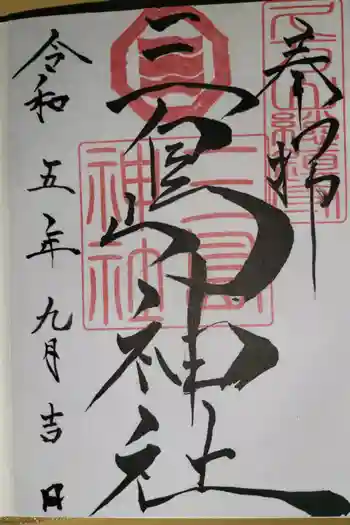 奉拝
三島神社
三島神社
令和五年九月吉日